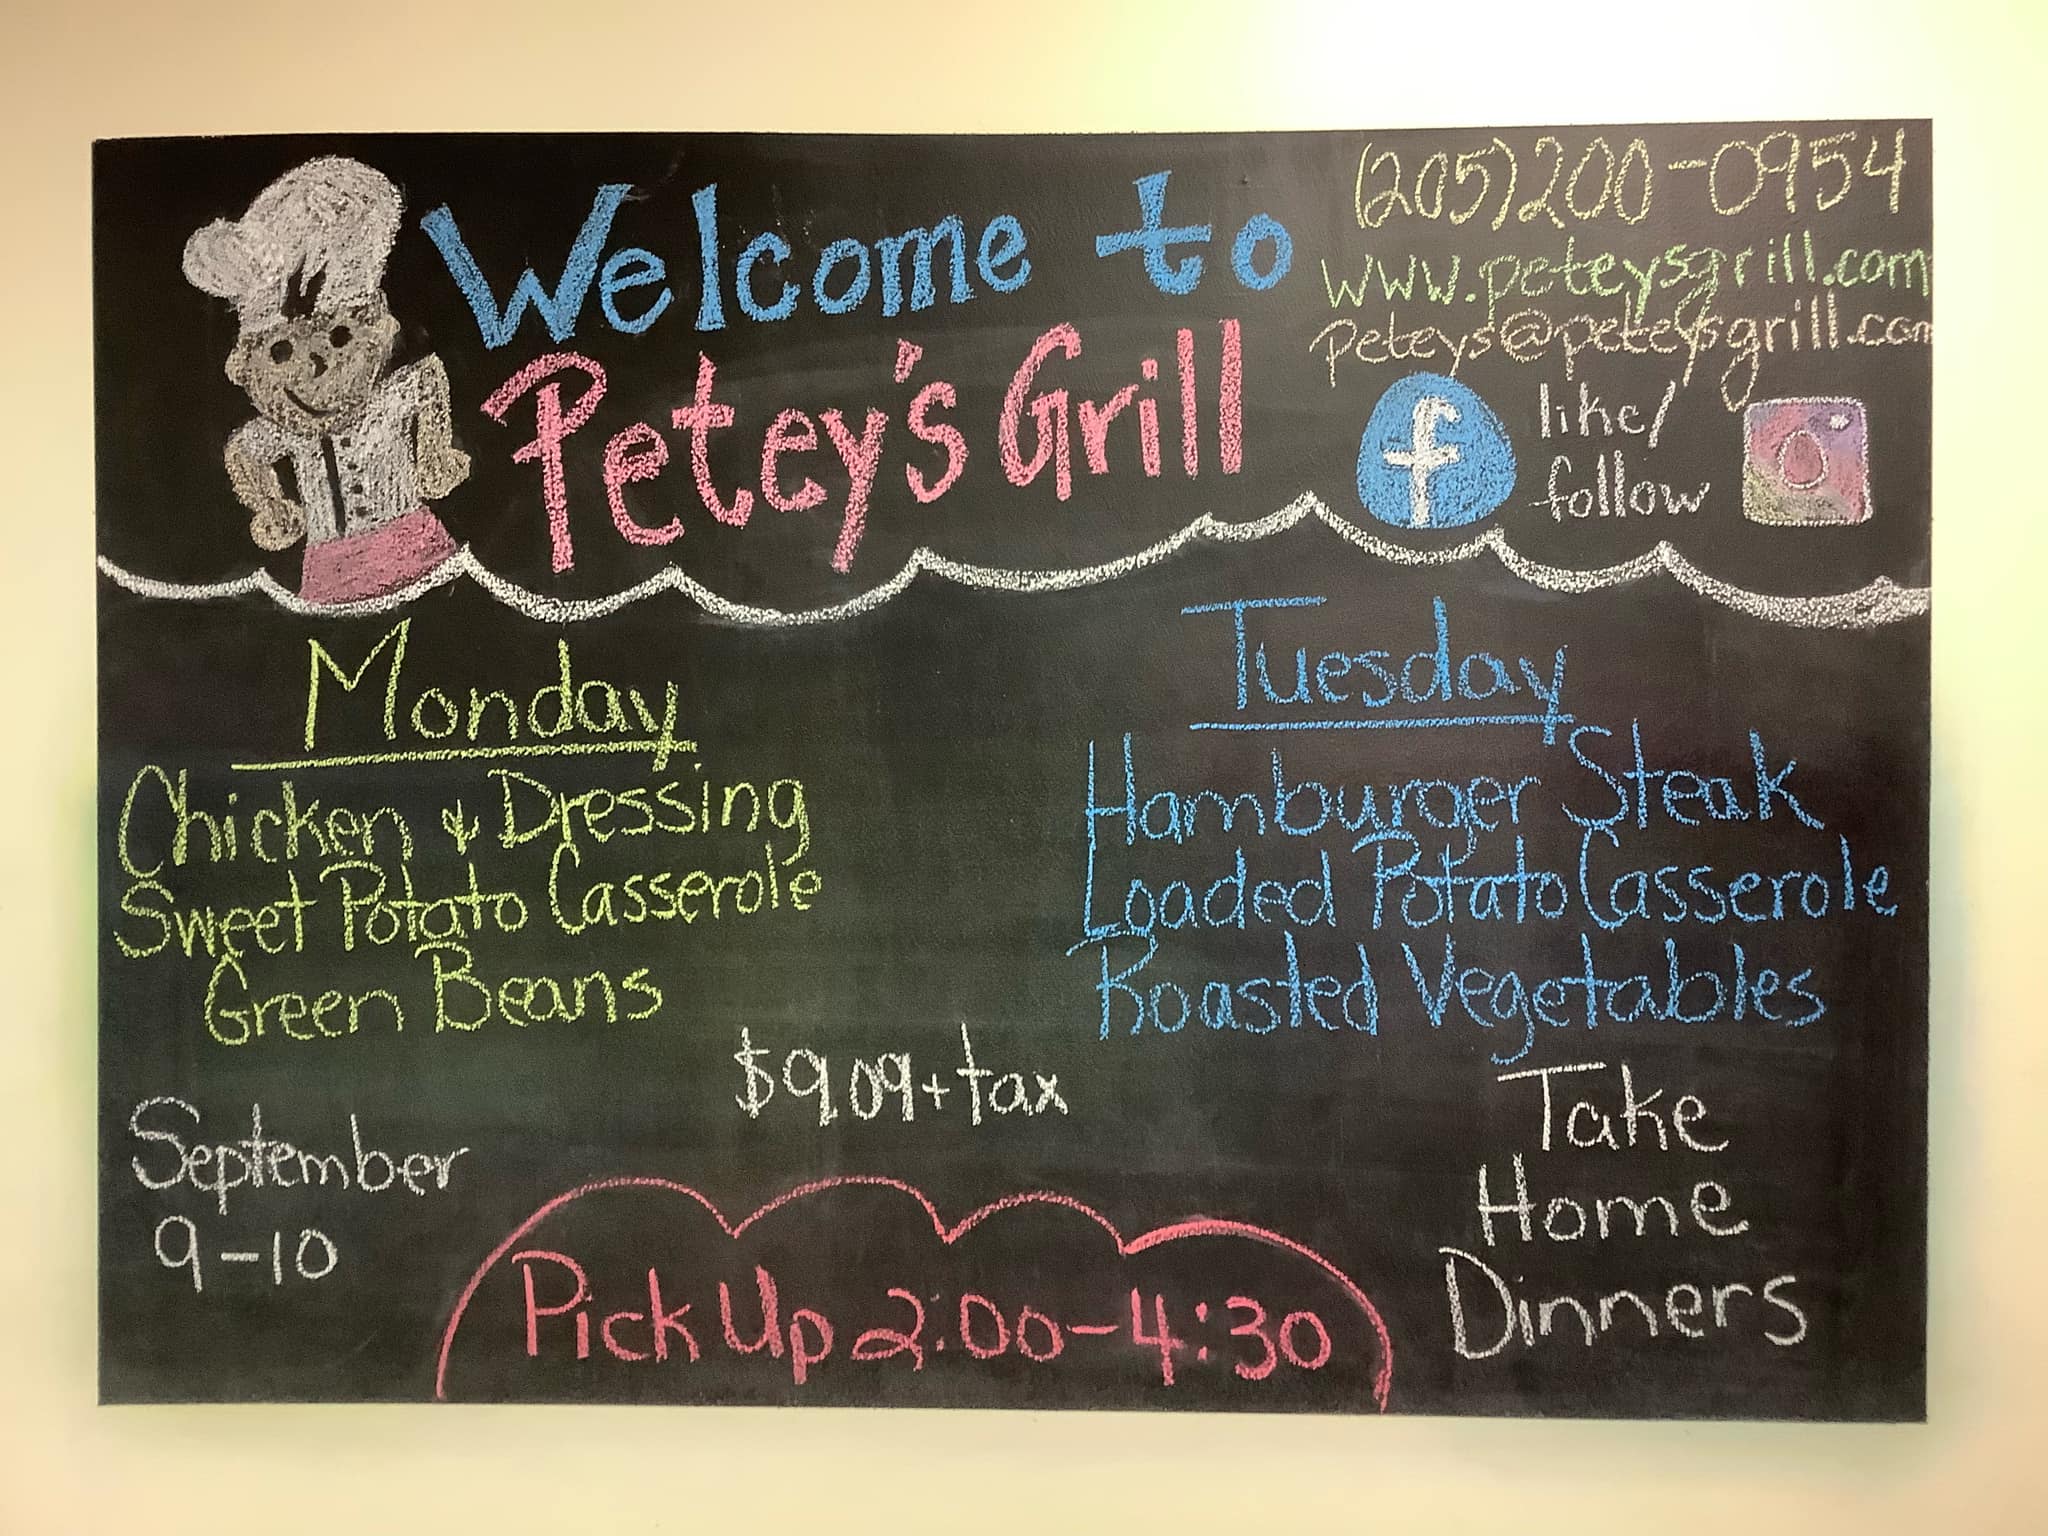 Welcome to
Petey's Grill
(205)200-0954
www.peteysgrill.com
peteys@peteysgrill.com
f
like/
follow
Monday
Chicken & Dressing
Sweet Potato Casserole
Green Beans
Tuesday
Hamburger Steak
Loaded Potato Casserole
Roasted Vegetables
$9.09+tax
September
9-10
Take
Home
Dinners
Pick Up 2:00-4:30